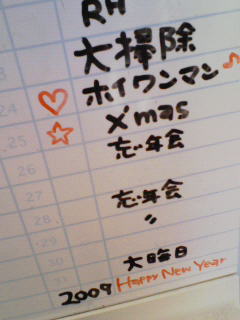 RH
大掃除
ホイワンマン♪
24 ♡ X'mas
25 ☆ 忘年会
26
27 忘年会
28 〃
29
30 大晦日
2009 Happy New Year